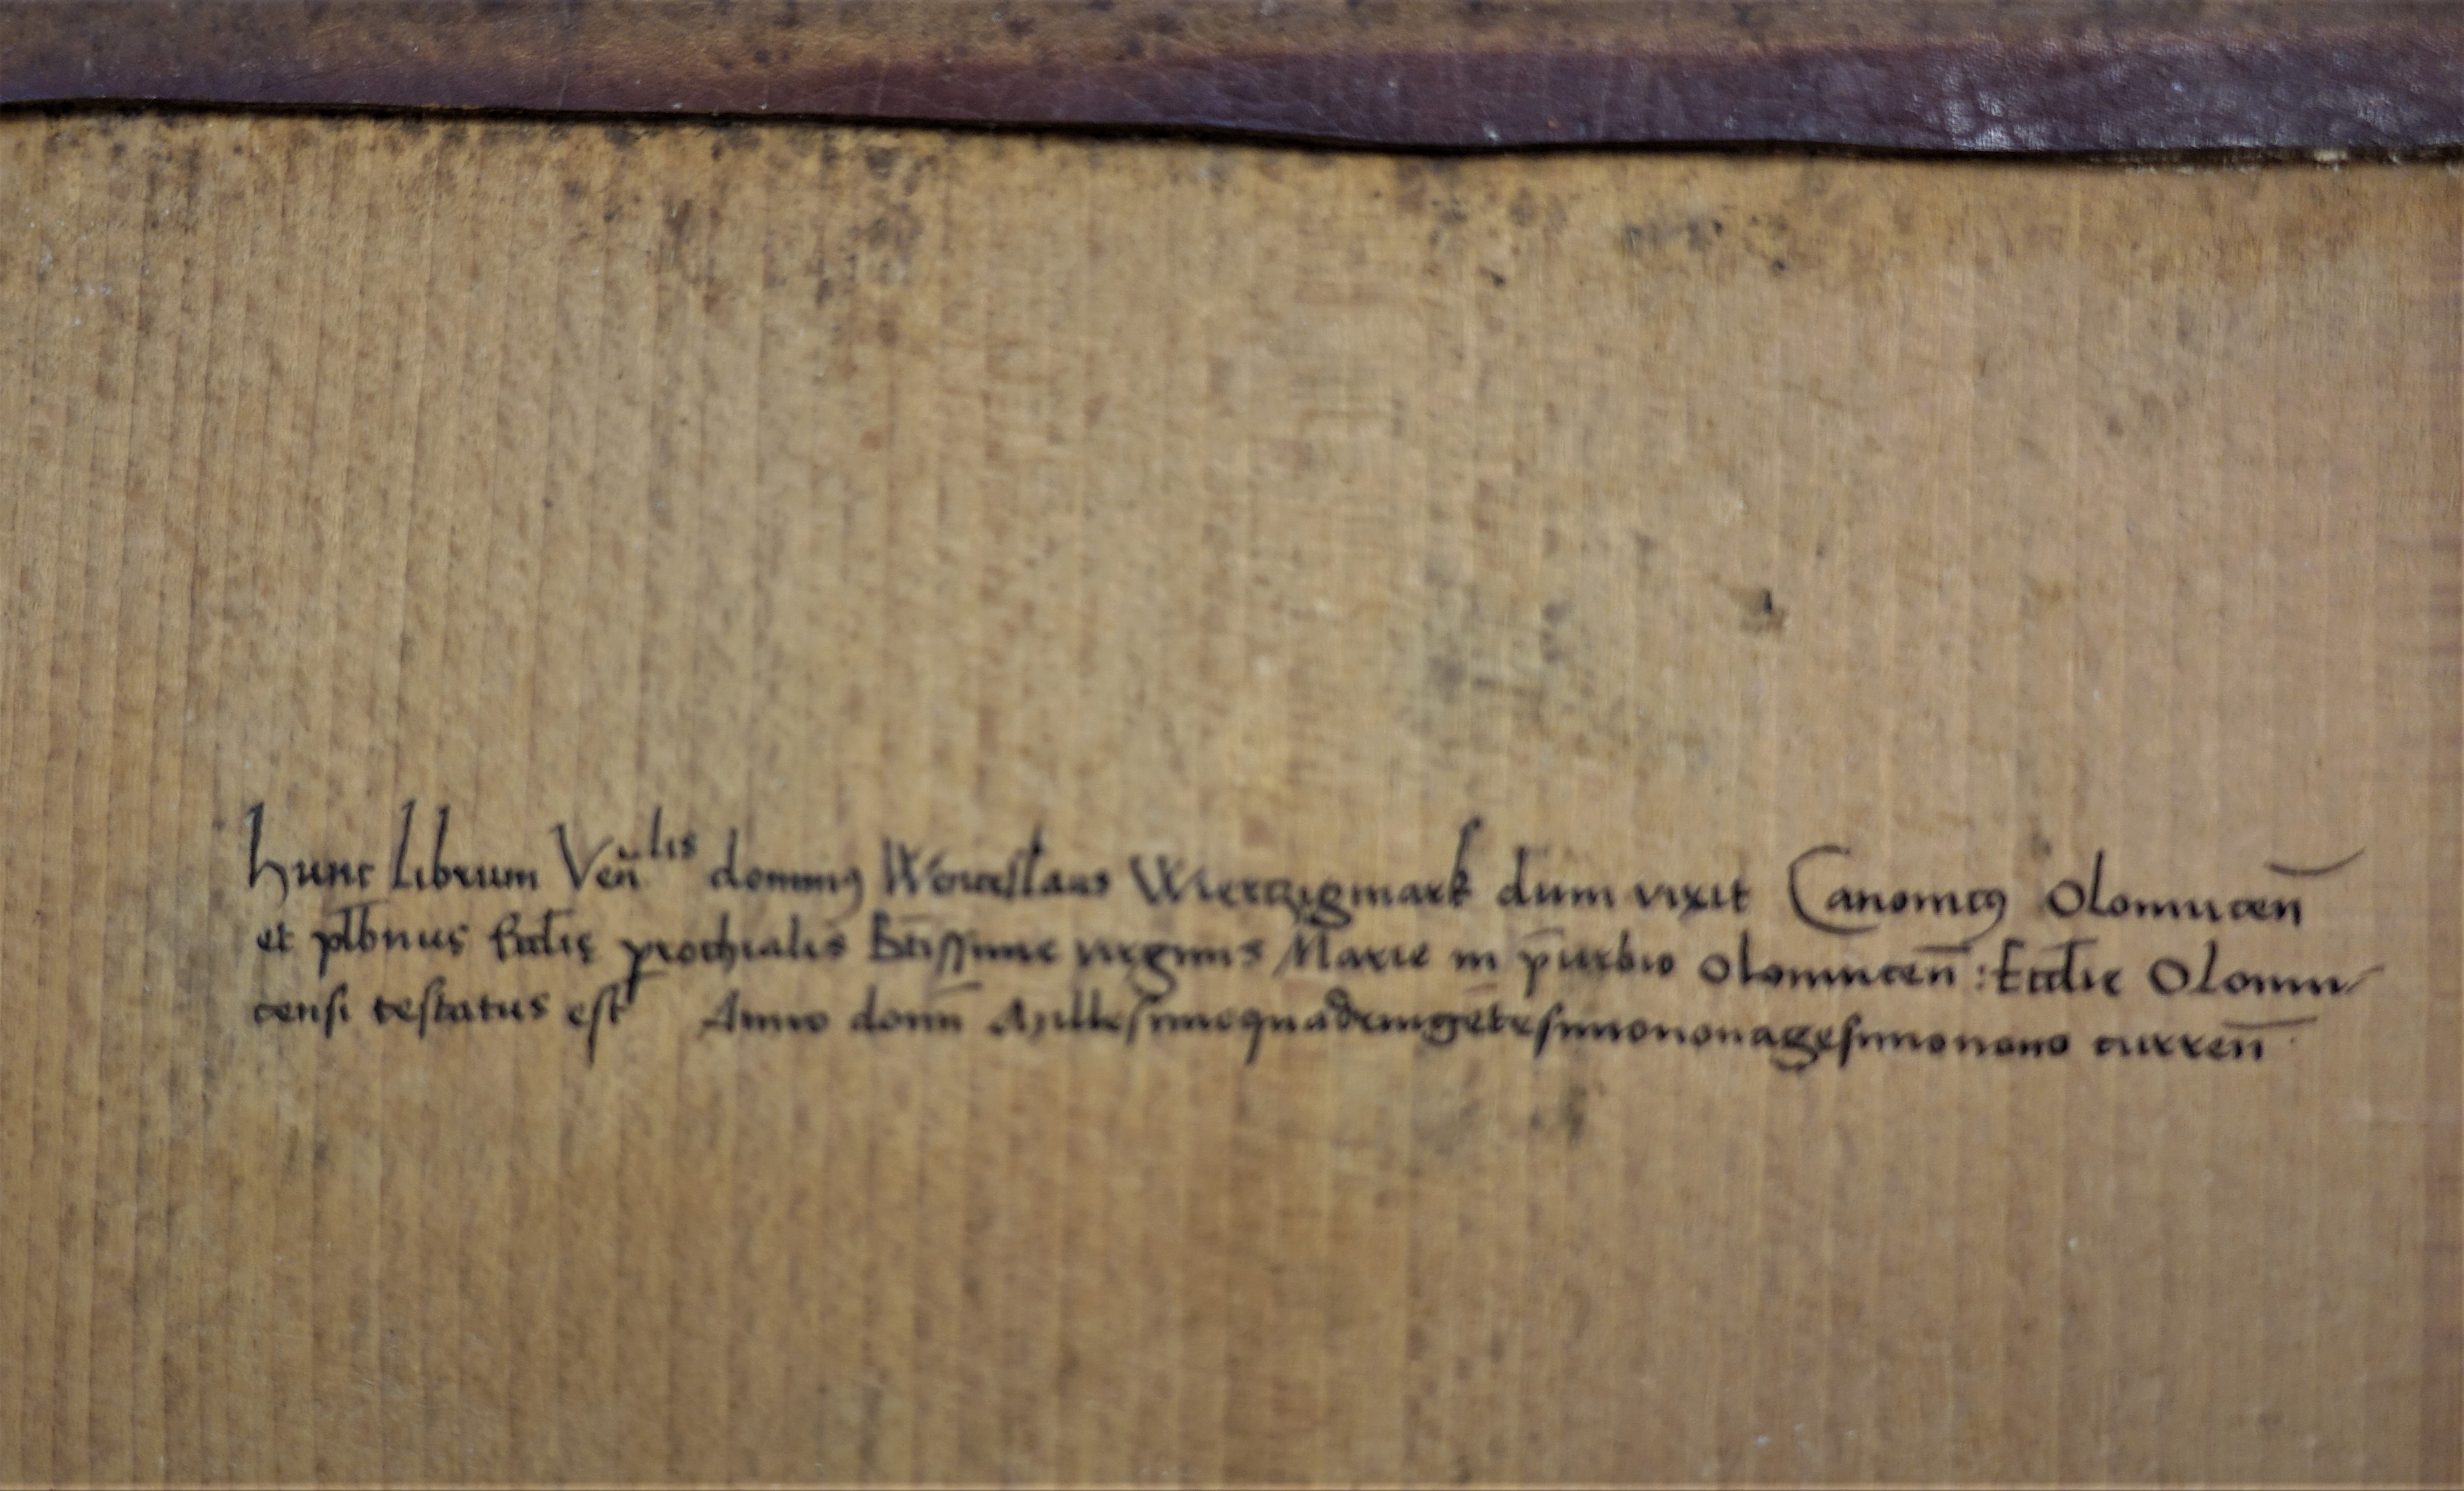 hunc librum Ven̄lis dominꝰ Wenceslaus Wierczigmark dum vixit Canonicꝰ Olomucen̄
et plb̄nus Eccl̄ię ꝑrochialis Bt̄issime virginis Marie in p̄urbio Olomucen̄ : Eccl̄ie Olomu-
censi testatus est Anno domī Millesimoquadringētesimononagesimonono curren̄